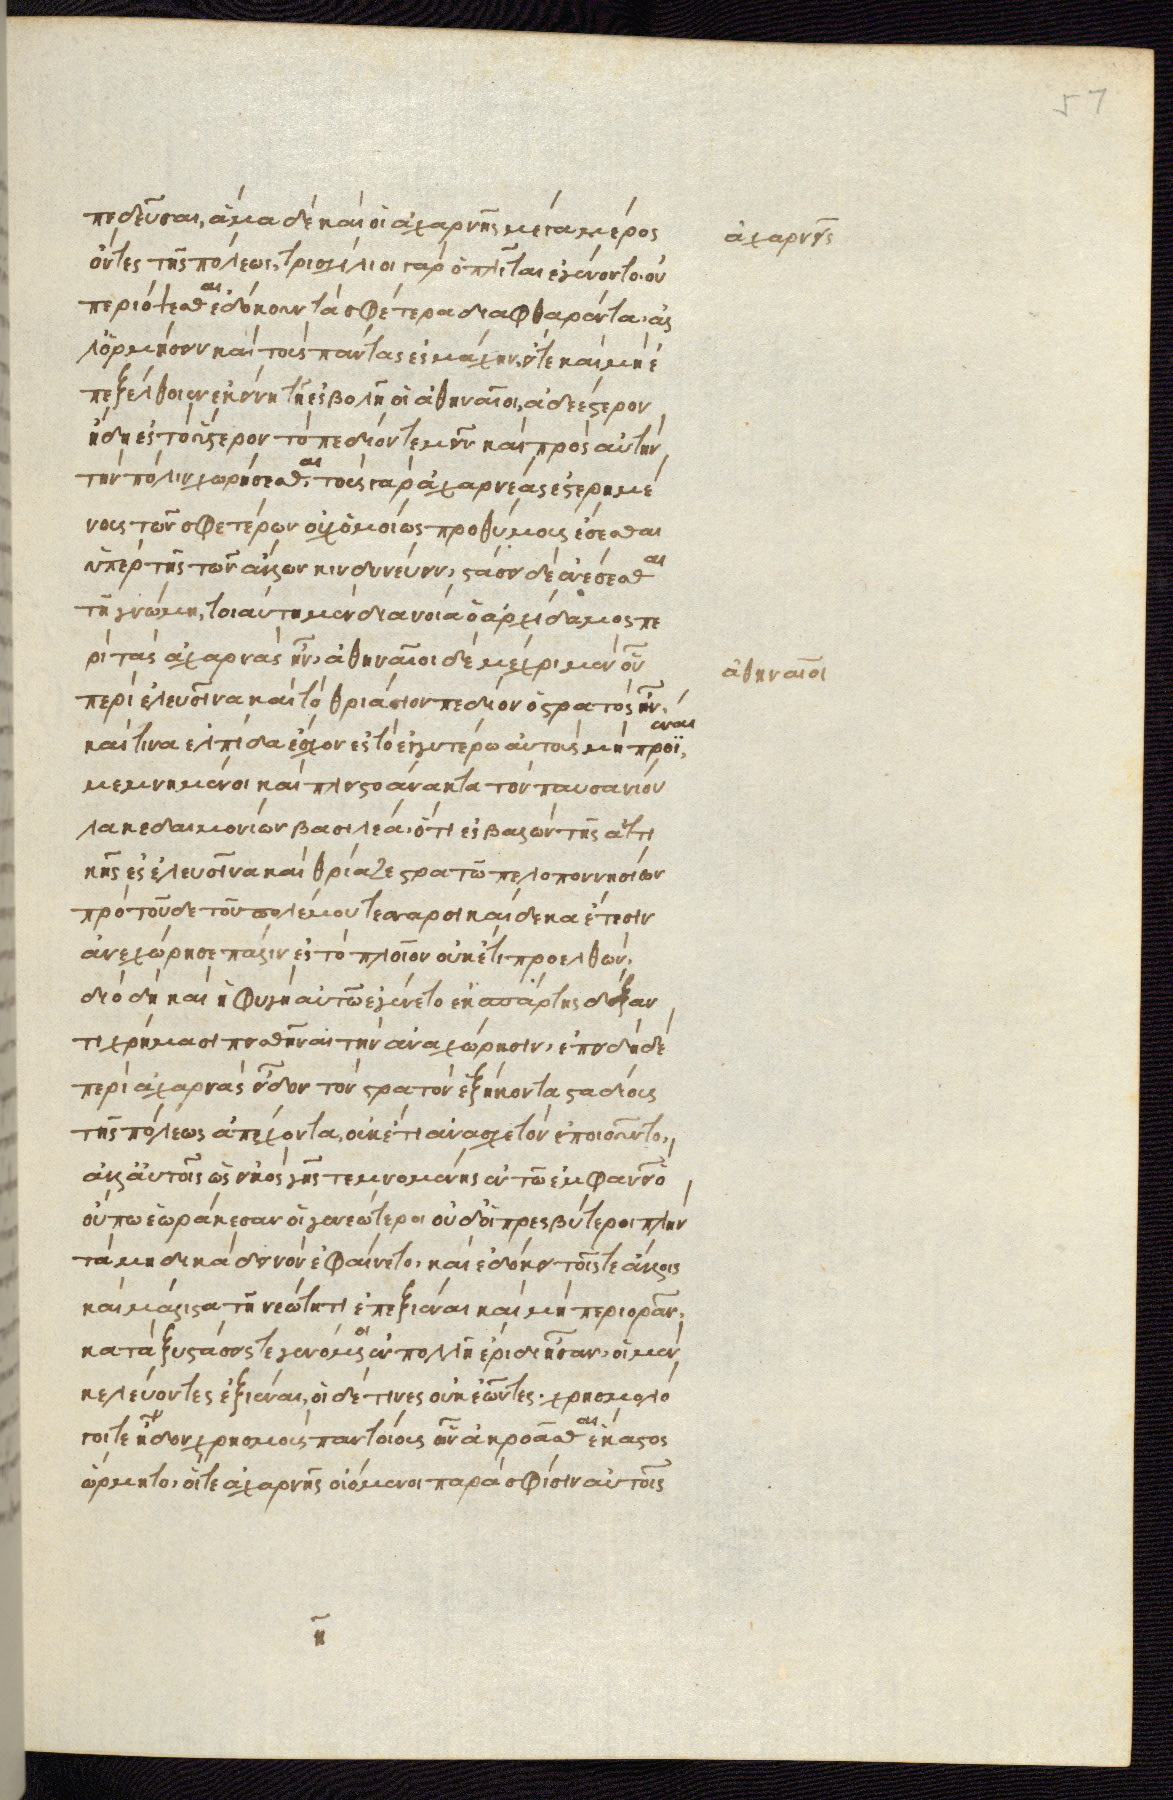 57
πεδεῦσαι, ἅμα δὲ καὶ οἱ ἀχαρνῆς μέγα μέρος
ἀχαρνεῖς
ὄντες τῆς πόλεως, τρισχίλιοι γὰρ ὁπλῖται ἐγένοντο, οὐ
περιόψεσθαι ἐδόκουν τὰ σφέτερα διαφθαρέντα, ἀλ
λ' ὁρμήσειν καὶ τοὺς πάντας ἐς μάχην, εἴτε καὶ μὴ ἐ
πεξέλθοιεν ἐκείνη τῇ ἐσβολῇ οἱ ἀθηναῖοι, ἀδεέστερον
ἤδη ἐς τὸ ὕστερον τὸ πεδίον τεμεῖν καὶ πρὸς αὐτὴν
τὴν πόλιν χωρήσεσθαι, τοὺς γὰρ ἀχαρνέας ἐστερημέ
νους τῶν σφετέρων οὐχ ὁμοίως προθύμους ἔσεσθαι
ὑπὲρ τῆς τῶν ἄλλων κινδυνεύειν, στάσιν δὲ ἐνέσεσθαι
τῇ γνώμῃ, τοιαύτη μὲν διανοία ὁ ἀρχίδαμος πε
ρὶ τὰς ἀχαρνὰς ἦν, ἀθηναῖοι δὲ μέχρι μὲν οὖν
ἀθηναῖοι
περὶ ἐλευσῖνα καὶ τὸ θριάσιον πεδίον ὁ στρατὸς ἦν,
καὶ τινα ἐλπίδα εἶχον ἐς τὸ ἐγγυτέρω αὐτοὺς μὴ προϊέναι,
μεμνημένοι καὶ πλειστοάνακτα τὸν παυσανίου
λακεδαιμονίων βασιλέα, ὅτι ἐσβαλὼν τῆς ἀττι
κῆς ἐς ἐλευσῖνα καὶ θρίαζε στρατῷ πελοποννησίων
πρὸ τοῦδε τοῦ πολέμου τέσσαρσι καὶ δέκα ἔτεσιν
ἀνεχώρησε πάλιν ἐς τὸ πλεῖον οὐκέτι προελθών,
διὸ δὴ καὶ ἡ φυγὴ αὐτῷ ἐγένετο ἐκ σπάρτης δόξαν
τι χρήμασι πεισθῆναι τὴν ἀναχώρησιν, ἐπειδὴ δὲ
περὶ ἀχαρνὰς εἶδον τὸν στρατὸν ἑξήκοντα σταδίους
τῆς πόλεως ἀπέχοντα, οὐκέτι ἀνασχετὸν ἐποιοῦντο,
ἀλλ' αὐτοῖς ὡς εἰκὸς γῆς τεμνομένης ἐν τῷ ἐμφανεῖ ὃ
οὔπω ἑωράκεσαν οἵ γε νεώτεροι οὐδ' οἱ πρεσβύτεροι πλὴν
τὰ μηδικὰ δεινὸν ἐφαίνετο, καὶ ἐδόκει τοῖς τε ἄλλοις
καὶ μάλιστα τῇ νεότητι ἐπεξιέναι καὶ μὴ περιορᾶν,
κατὰ ξυστάσεις τε γενόμενοι ἐν πολλῇ ἔριδι ἦσαν, οἱ μὲν
κελεύοντες ἐξιέναι, οἱ δέ τινες οὐκ ἐῶντες, χρησμολό
γοι τε ᾖδον χρησμοὺς παντοίους ὧν ἀκροᾶσθαι ἕκαστος
ὥρμητο, οἵ τε ἀχαρνῆς οἰόμενοι παρὰ σφίσιν αὐτοῖς
η